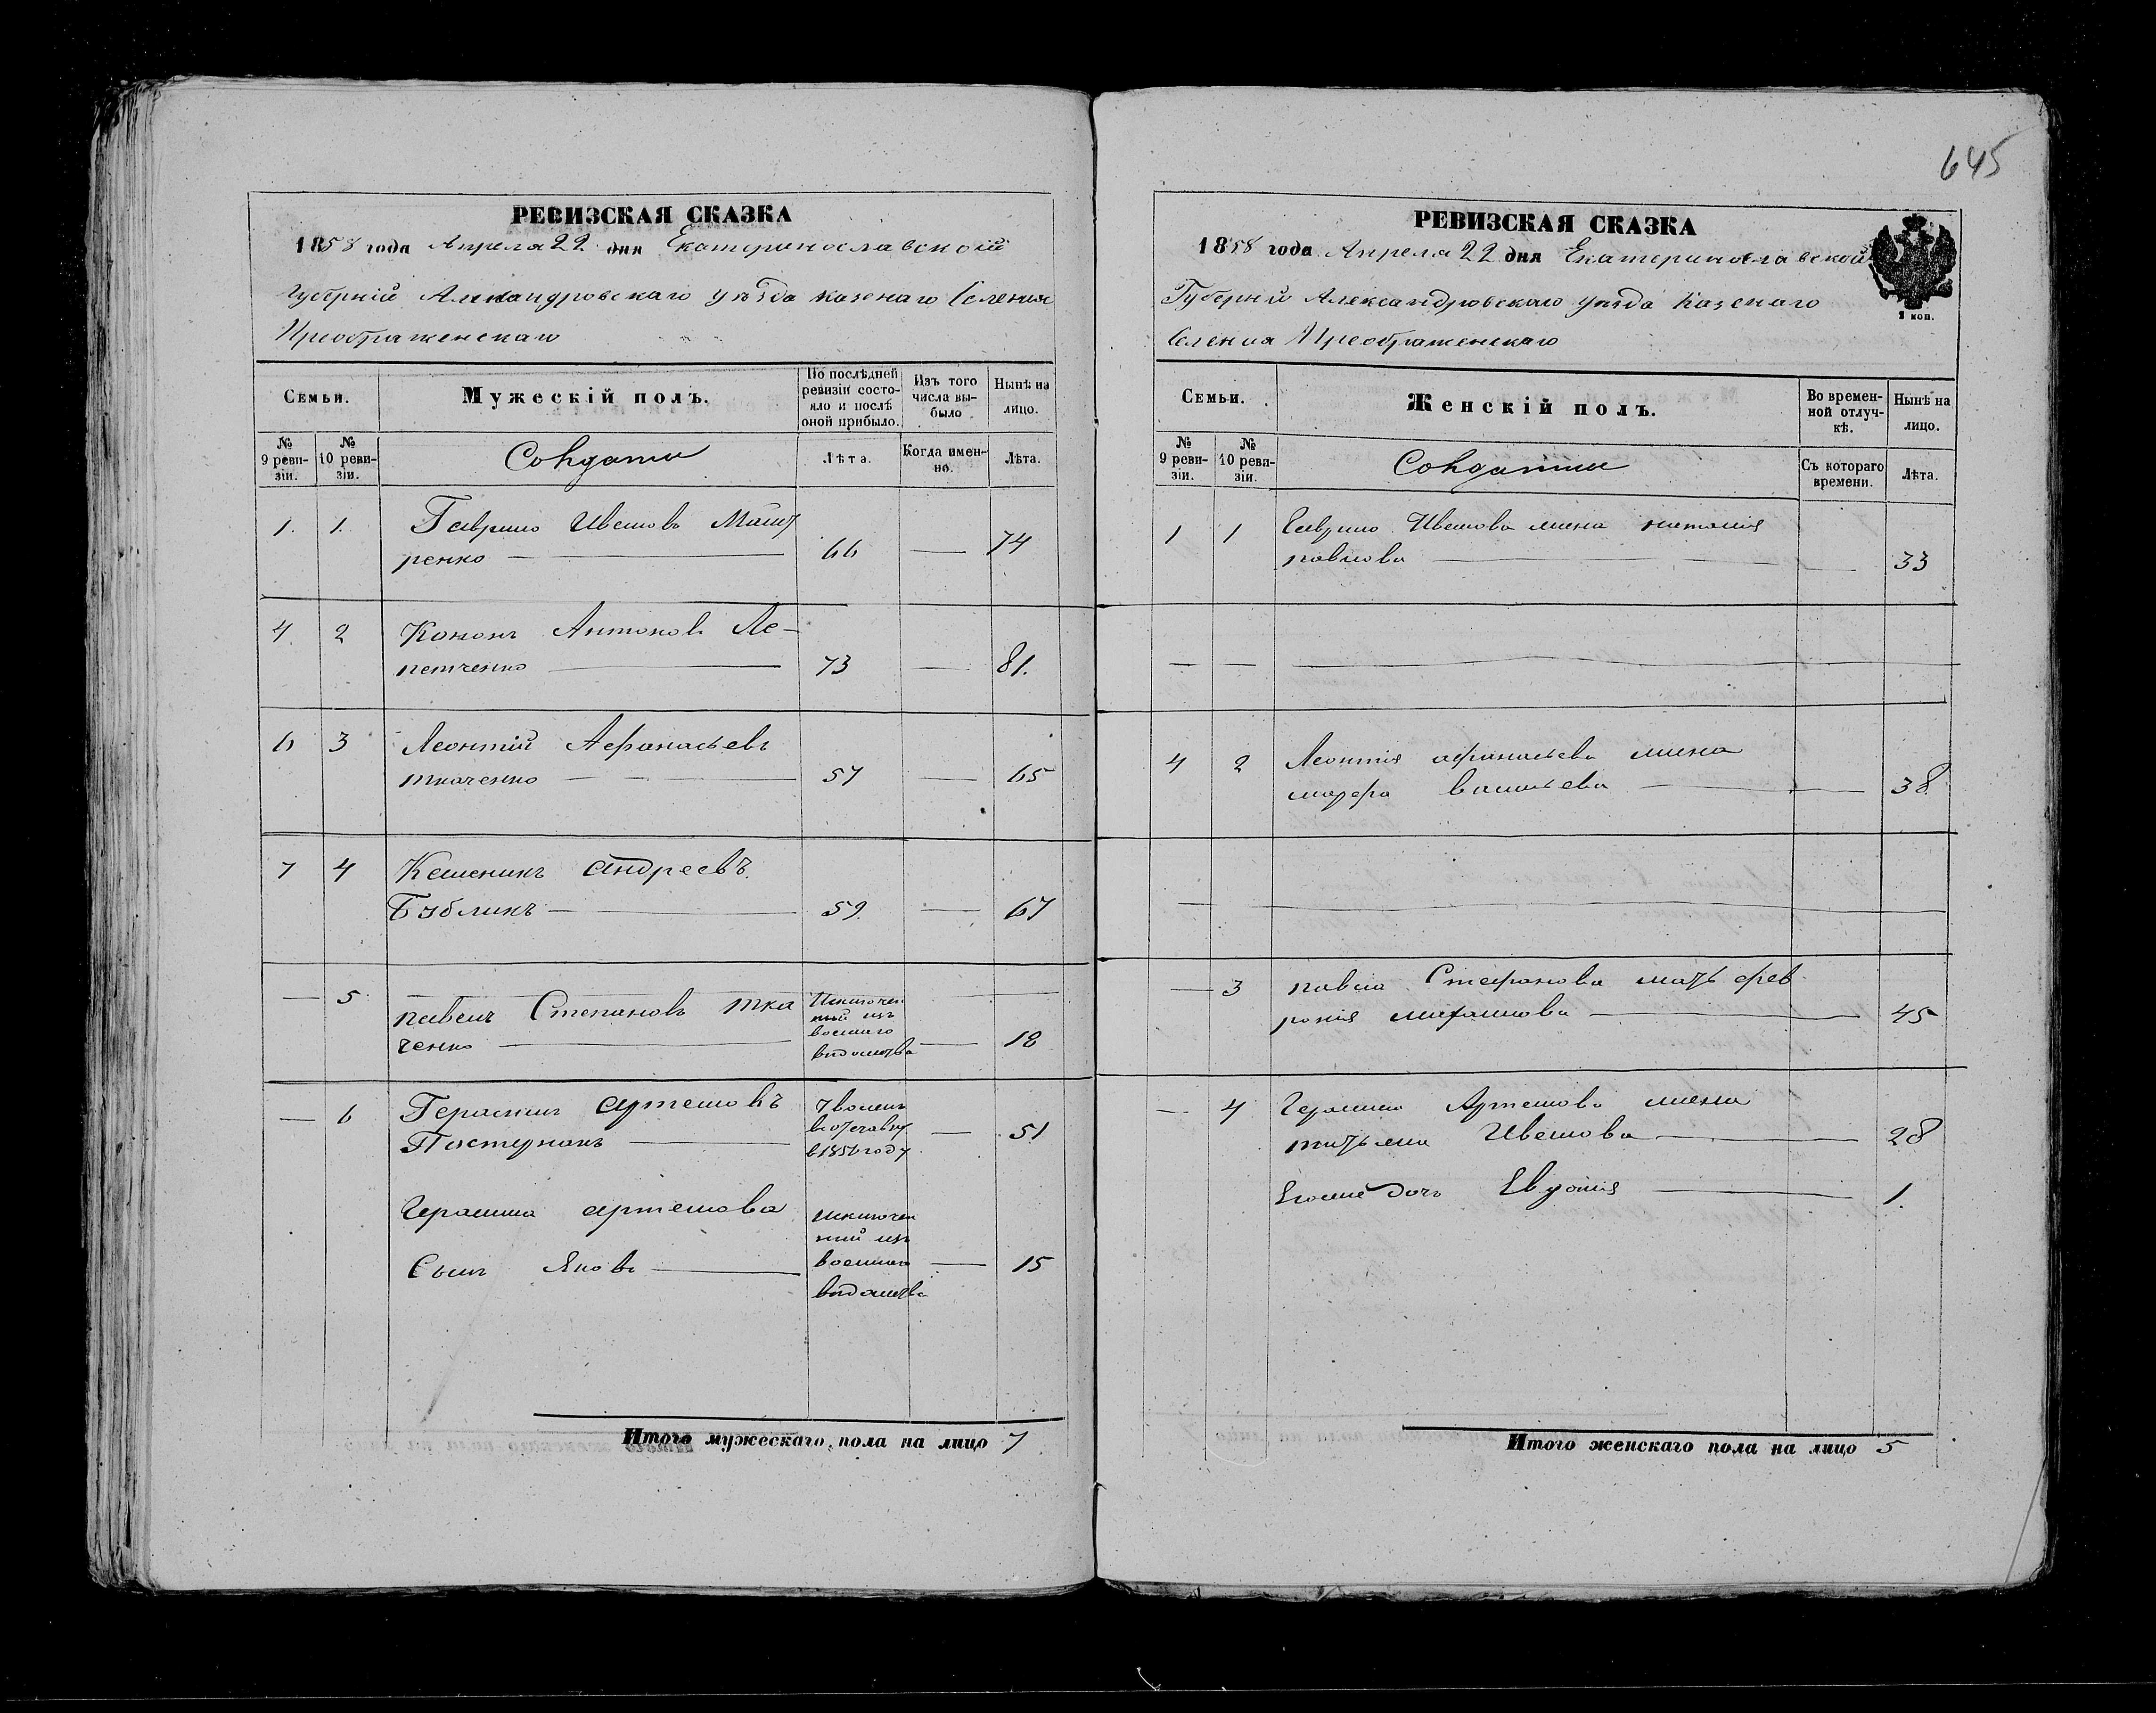 645
РЕВИЗСКАЯ СКАЗКА
1858 года Апреля 22 дня Екатеринославской
Губерніи Александровскаго уѣзда казенаго Селения
Преображенскаго
Семьи.
Мужескій полъ.
По послѣдней ревизіи состояло и послѣ оной прибыло.
Изъ того числа выбыло
Нынѣ на лицо.
№ 9 ревизіи.
№ 10 ревизіи.
Солдати
Лѣта.
Когда именно.
Лѣта.
1. 1. Гаврило Ивановъ
ренко — 66 — 74
4 2 Кононъ Антоновъ Ле-
петченко — 73 — 81.
6 3 Леонтій Афанасьевъ
ткаченко — 57 — 65
7 4 андреевъ
Бубликъ — 59. — 67
— 5 павелъ Степановъ тка
ченко — 18
Изключен
ный изъ
военнаго
видомства
— 6 Герасимъ артемовъ
Пастернакъ — 51
уволенъ
в отставку
в 1856 году
Герасима артемова
Сынъ Яковъ — 15
изключен
ный изъ
военнаго
видомства
Итого мужескаго пола на лицо 7
РЕВИЗСКАЯ СКАЗКА
1858 года Апреля 22 дня Екатеринославской
Губерніи Александровскаго уѣзда Казенаго
Селения Преображенскаго
2 коп.
Семьи.
Женскій полъ.
Во временной отлучкѣ.
Нынѣ на лицо.
№ 9 ревизіи.
№ 10 ревизіи.
Солдатки
Съ котораго времени.
Лѣта.
1 1 Гаврило Иванова жена наталия
павлова — 33
4 2 Леонтия афанасьева жена
васильева — 38
— 3 павла Стефанова мать фев
рония — 45
— 4 Герасима Артемова жена
татьяна Иванова — 28
Егоже дочь Евдокия — 1.
Итого женскаго пола на лицо 5